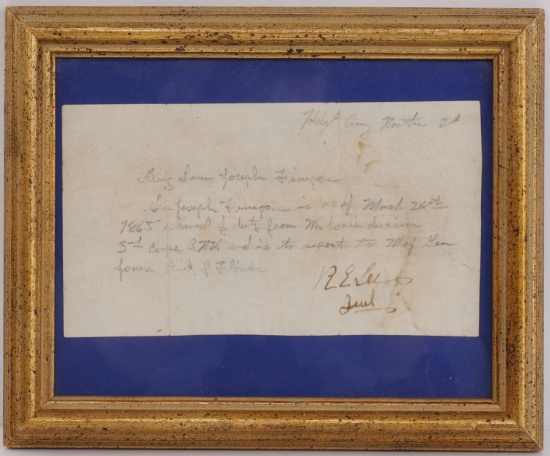 Hdqts Army Northern Va
Brig Genl Joseph Finegan
Gen Joseph Finegan is as of March 20th
1865 relieved of duty from Mahones division
3rd Corps ANV and is to report to Maj Gen
Jones Dist of Florida
R E Lee
Genl